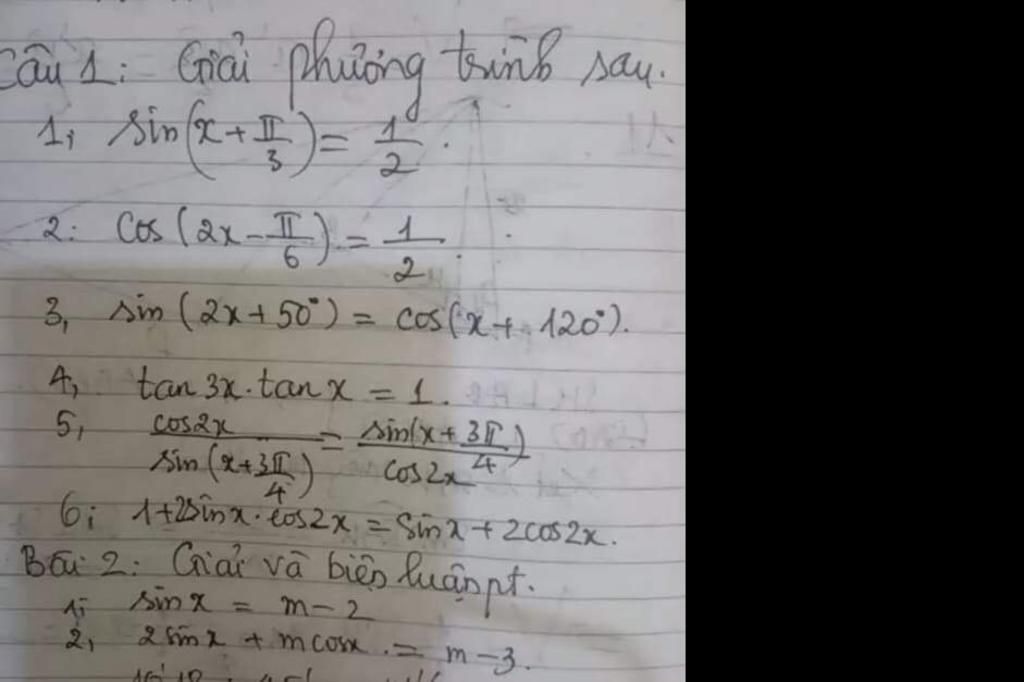 Câu 1: Giải phương trình sau.
1, sin(x + π/3) = 1/2.
2: cos(2x - π/6) = 1/2.
3, sin(2x + 50°) = cos(x + 120°).
4, tan3x.tanx = 1.
5, cos2x / sin(x + 3π/4) = sin(x + 3π/4) / cos2x
6; 1 + 2sinx.cos2x = sinx + 2cos2x.
Bài 2: Giải và biện luận pt.
1; sinx = m - 2
2, 2sinx + mcosx = m - 3.